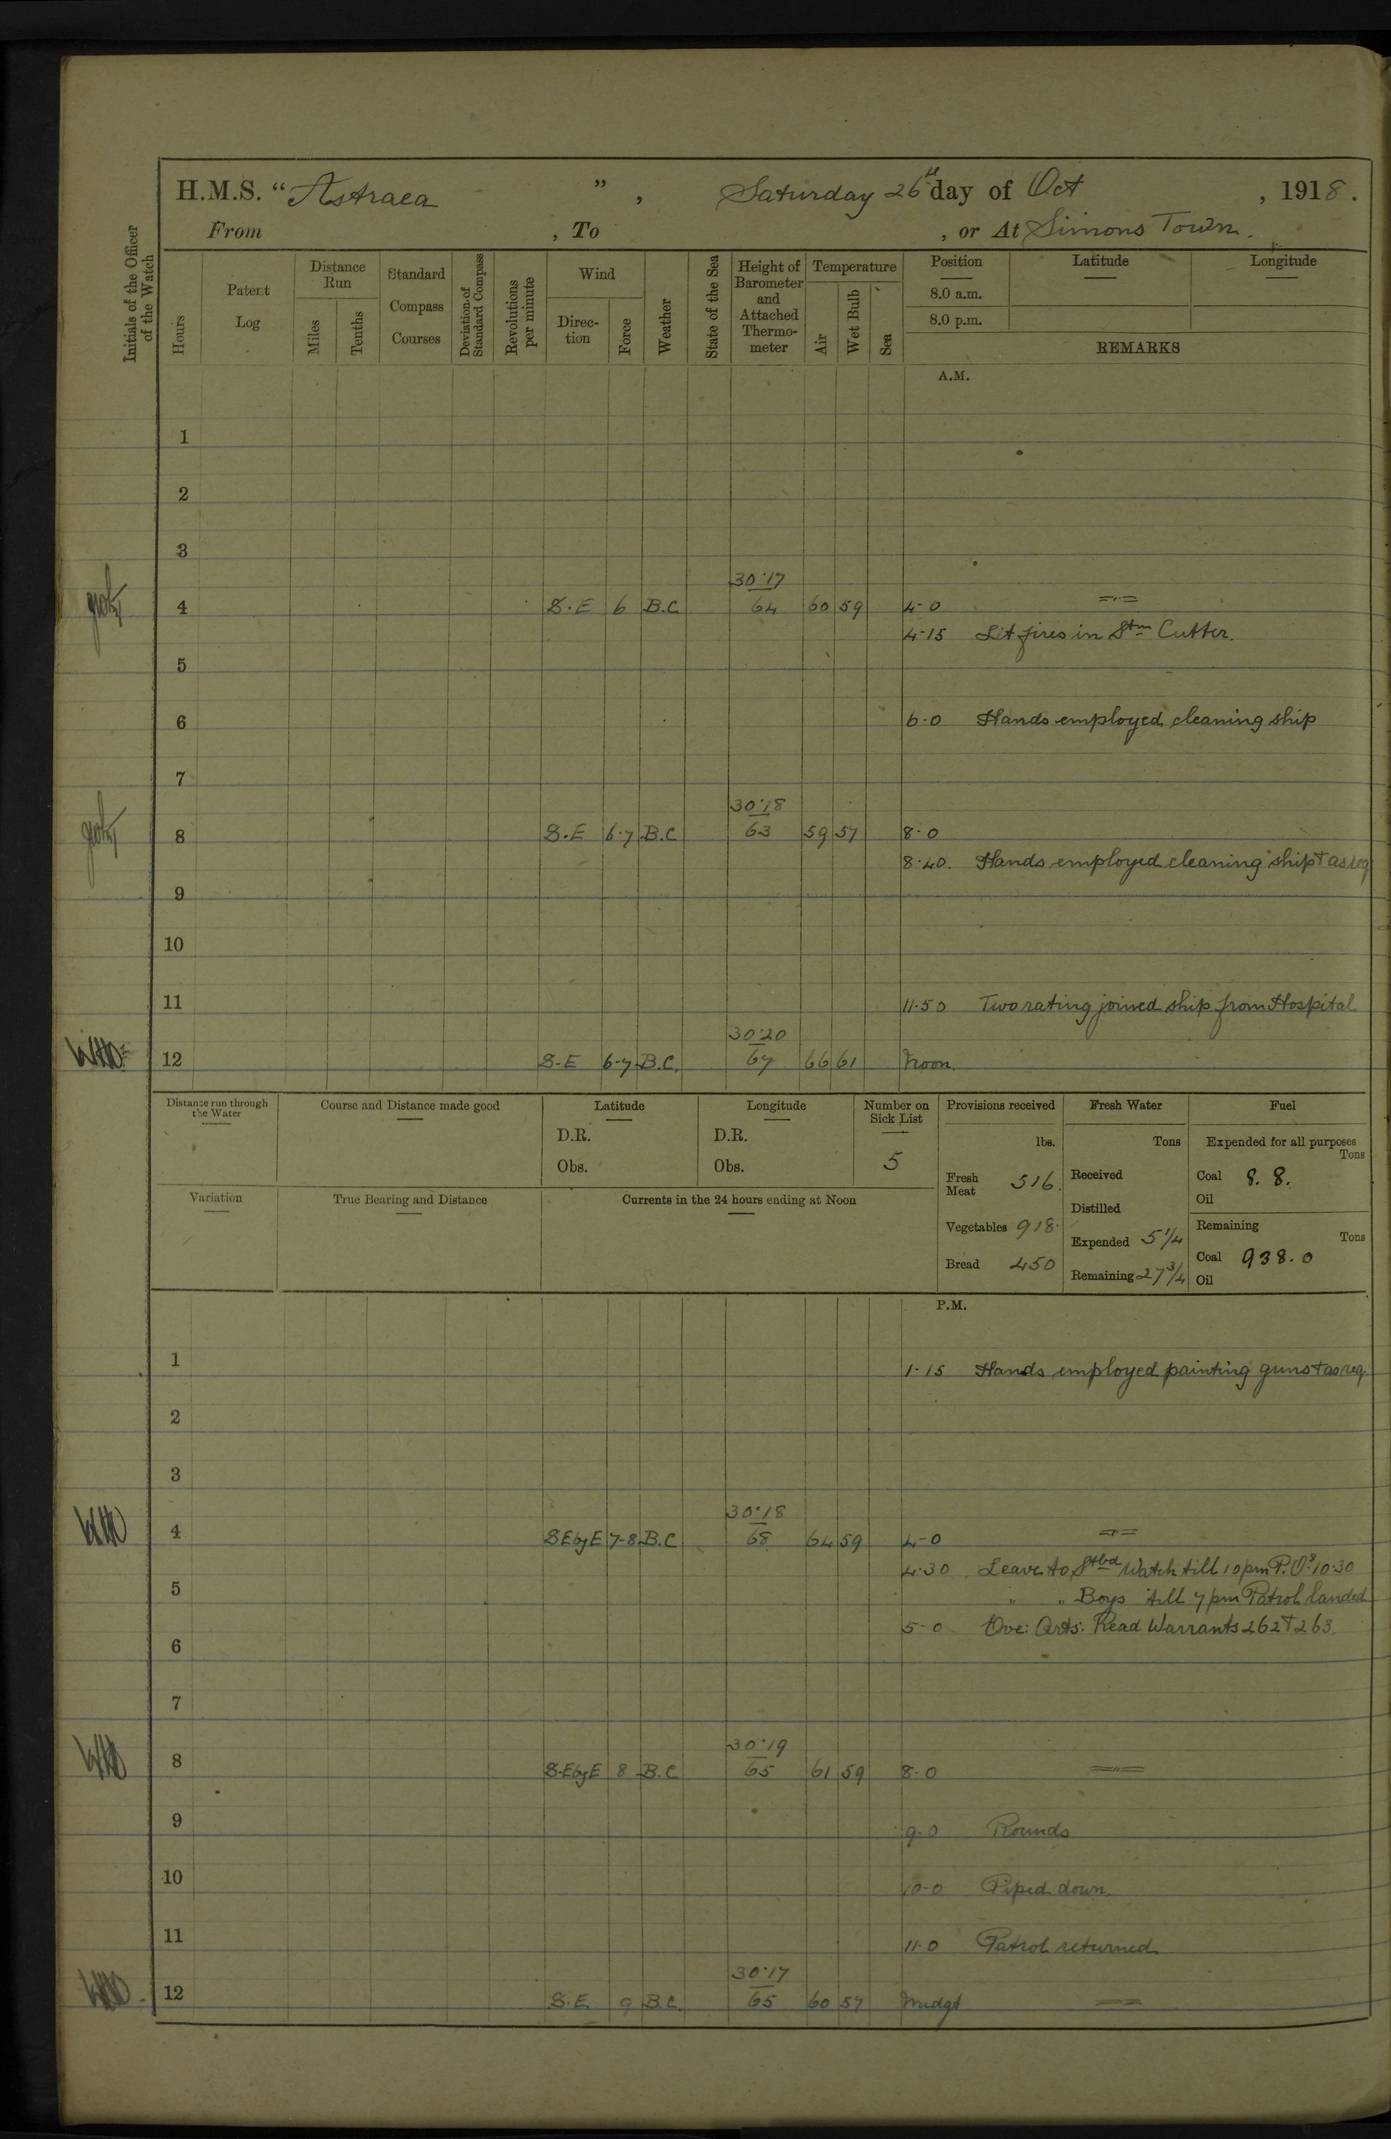 H.M.S. "Astraea", Saturday 26th day of Oct, 1918.
From , To , or At Simons Town.
Initials of the Officer of the Watch
Hours
Patent Log
Distance Run
Miles
Tenths
Standard Compass Courses
Deviation of Standard Compass
Revolutions per minute
Wind
Direction
Force
Weather
State of the Sea
Height of Barometer and Attached Thermometer
Temperature
Air
Wet Bulb
Sea
Position
8.0 a.m.
8.0 p.m.
Latitude
Longitude
REMARKS
A.M.
1
2
3
30.17
4 S.E 6 B.C. 64 60 59 4-0 —"—
4-15 Lit fires in Stm Cutter.
5
6 6-0 Hands employed cleaning ship
7
30.18
8 S.E 6-7 B.C 63 59 57 8-0
8-40. Hands employed cleaning ship + as req
9
10
11 11-50 Two rating joined ship from Hospital
30.20
12 S-E 6-7 B.C. 67 66 61 Noon
Distance run through the Water
Course and Distance made good
Latitude
D.R.
Obs.
Longitude
D.R.
Obs.
Number on Sick List
5
Provisions received
lbs.
Fresh Meat 516.
Vegetables 918.
Bread 450
Fresh Water
Tons
Received
Distilled
Expended 5 1/4
Remaining 27 3/4
Fuel
Expended for all purposes
Tons
Coal 8.8.
Oil
Remaining
Tons
Coal 938.0
Oil
Variation
True Bearing and Distance
Currents in the 24 hours ending at Noon
P.M.
1 1-15 Hands employed painting guns + as req
2
3
30.18
4 SEbyE 7-8 B.C 68 64 59 4-0 —"—
4-30 Leave to Stbd Watch till 10 pm P.Os 10.30
5 " " Boys till 7 pm Patrol landed
5-0 Eve: Qrts: Read Warrants 262 + 263.
6
7
30.19
8 S.EbyE 8 B.C 65 61 59 8-0 —"—
9 9-0 Rounds
10 10-0 Piped down.
11 11-0 Patrol returned
30.17
12 S.E. 9 B.C. 65 60 57 Midgt —"—